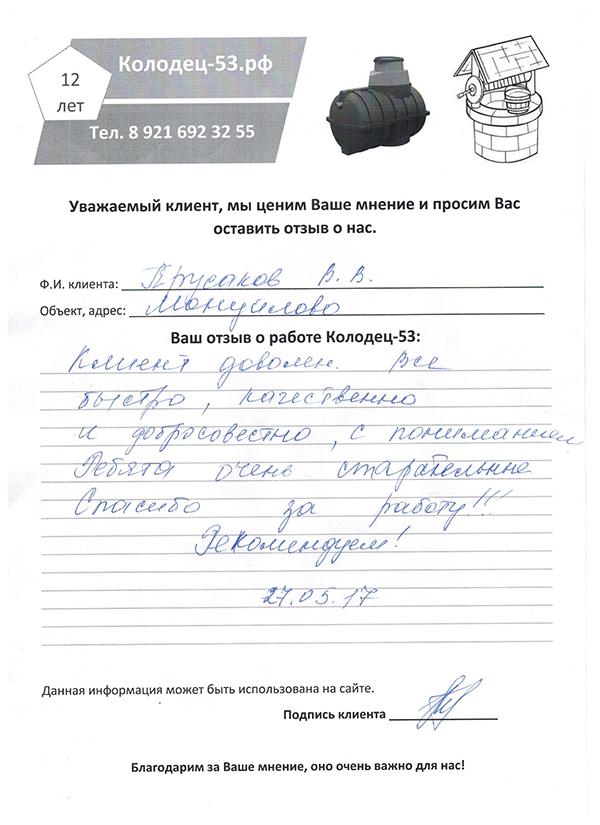 12
лет
Колодец-53.рф
Тел. 8 921 692 32 55
Уважаемый клиент, мы ценим Ваше мнение и просим Вас
оставить отзыв о нас.
Ф.И. клиента: Трусаков В. В.
Объект, адрес: Мануйлово
Ваш отзыв о работе Колодец-53:
Клиент доволен. Все
быстро, качественно
и добросовестно, с пониманием
Ребята очень старательные
Спасибо за работу!!!
Рекомендуем!
27.05.17
Данная информация может быть использована на сайте.
Подпись клиента
Благодарим за Ваше мнение, оно очень важно для нас!